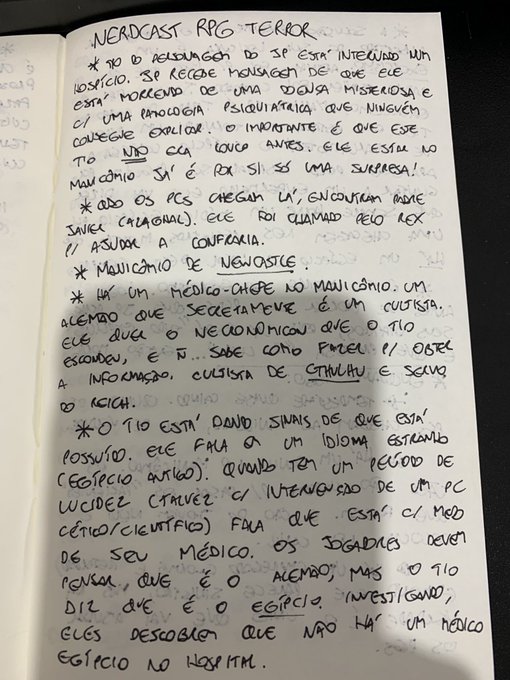 NERDCAST RPG TERROR
* TIO DO PERSONAGEM DO JP ESTÁ INTERNADO NUM
HOSPÍCIO. JP RECEBE MENSAGEM DE QUE ELE
ESTÁ MORRENDO DE UMA DOENÇA MISTERIOSA E
C/ UMA PATOLOGIA PSIQUIÁTRICA QUE NINGUÉM
CONSEGUE EXPLICAR. O IMPORTANTE É QUE ESTE
TIO NÃO ERA LOUCO ANTES. ELE ESTAR NO
MANICÔMIO JÁ É POR SI SÓ UMA SURPRESA!
* QDO OS PCS CHEGAM LÁ, ENCONTRAM PADRE
JAVIER (CARAGNAL). ELE FOI CHAMADO PELO REX
P/ AJUDAR A CONFRARIA.
* MANICÔMIO DE NEWCASTLE.
* HÁ UM MÉDICO-CHEFE NO MANICÔMIO. UM
ALEMÃO QUE SECRETAMENTE É UM CULTISTA.
ELE QUER O NECRONOMICON QUE O TIO
ESCONDEU, E Ñ... SABE COMO FAZER P/ OBTER
A INFORMAÇÃO. CULTISTA DE CTHULHU E SERVO
DO REICH.
* O TIO ESTÁ DANDO SINAIS DE QUE ESTÁ
POSSUÍDO. ELE FALA EM UM IDIOMA ESTRANHO
(EGÍPCIO ANTIGO). QUANDO TEM UM PERÍODO DE
LUCIDEZ (TALVEZ C/ INTERVENÇÃO DE UM PC
CÉTICO/CIENTÍFICO) FALA QUE ESTÁ C/ MEDO
DE SEU MÉDICO. OS JOGADORES DEVEM
PENSAR QUE É O ALEMÃO, MAS O TIO
DIZ QUE É O EGÍPCIO. INVESTIGANDO,
ELES DESCOBREM QUE NÃO HÁ UM MÉDICO
EGÍPCIO NO HOSPITAL.